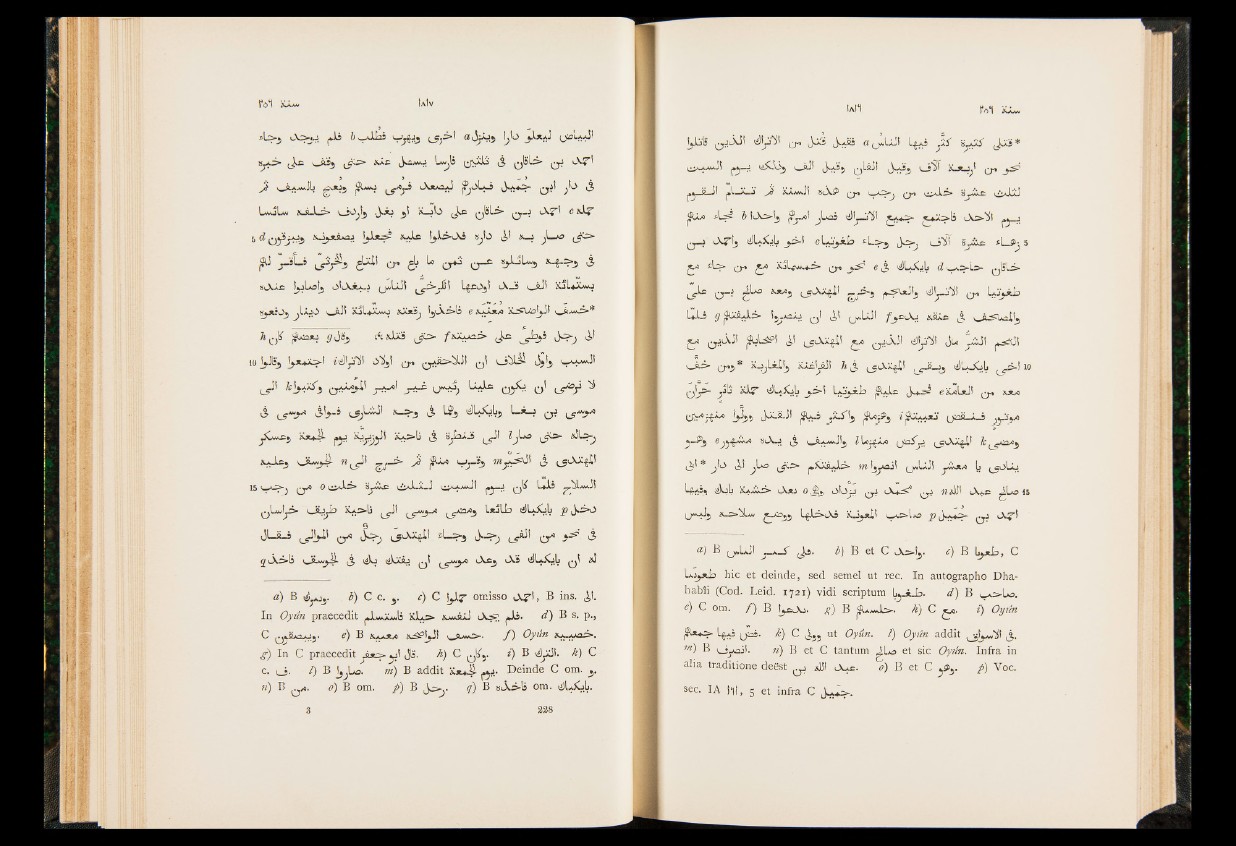 ١٨١٦ سنة ٢٥٦
*قتلى كثيرة كثّر فيها الناس a فقيل قُتل من الاتراك الذين قاتلوا
نحو من اربعة آلاف وقيل الفان وقيل الف وذلك يوم السبت
لثلث عشرة خلت من رجب من هذه السنة ثم تتامّ القوم
يوم الاحد فاجتمع جميع الاتراك فصار امرهم واحدا b فجاء منهم
5 زهاء عشرة آلاف رجل وجاء طغوتيا c اخو بايكباك واحمد بن
خاقان حاجب d بايكباك فى e نحو من خمسمائة مع من جاء مع
طغوتيا من الاتراك والعجم وخرج المهتدى ومعه صالح بن علىّ
والمصحف فى عنقه يدعو f الناس الى ان ينصروا خليفتهم g فلمّا
التحم الشرّ مال الاتراك الذين مع المهتدى الى اصحابهم الذين مع
10 اخى بايكباك وبقى المهتدى فى h الفراغنة والمغاربة *ومن خفّ
معه من العامّة e فحمل عليهم طغوتيا اخو بايكباك حملة ثائر حرّان
موتور فنقض تعبيتهم i وهزمهم واكثر فيهم القتل وولّوا منهزمين
ومضى k المهتدى يركض منهزما l والسيف فى يده مشهور e وهو
ينادى يا معشر الناس انصروا m خليفتكم حتى صار الى دار *ابى
15 صالح عبد الله n بن محمّد بن يزداد وهى o بعد خشبة بابك وفيها
احمد بن جُميل p صاحب المعونة فدخلها ووضع سلاحه ولبس
a) B فلى كسر الناس. b) B et C واحد. c) B طغوا, C
طعوىىا hic et deinde, sed semel ut rec. In autographo Dha-
habîi (Cod. Leid. 1721) vidi scriptum طغويا. d) B صاحب.
e) C om. f) B يدعوا. g) B h) C مع. i) Oyûn
فضّ فيها جمعهم. k) C وولى ut Oyûn. l) Oyûn addit فى الاسواق.
m) B انصرف. n) B et C tantum صالح et sic Oyûn. Infra in
alia traditione deëst عبد الله بن. o) B et C وهو. p) Voc.
sec. IA ١٦١, 5 et infra C جُمَيل.
سنة ٢٥٦ ١٨١٧
البياض ليعلو دارا وينزل a اخرى ويهرب فطُلب b فلم يوجد وجاء
احمد بن خاقان فى ثلثين فارسا يسئل عنه حتى وقف على خبره
فى دار ابن جميل فبادرهم ليصعد فرُمى بسهم وبُعج بالسيف ثم
حمله c احمد بن خاقان على دابّة او بغل واردف خلفه سائسا
5 حتى صار به الى داره فدخلوا عليه فجعلوا يصفعونه ويبزقون d
فى وجهه وسائلوه عن ثمن ما باع من المتاع والخُرثىّ فاقرّ لهم
بستّمائة الف قد اودعها الكرخىّ الناس ببغداد واصابوا عنده
*خسف الواضحة مغنّية e فاخذوا رقعته بستّمائة الف دينار ودفعوه
الى رجل فوطئ على خصيتيه f حتى قتله، وقال g بعضهم كان h
10 السبب واوّل الخلاف ان اللاحقين من اولاد الاتراك i اجتمعوا وقالوا
لا نرضى ان يكون علينا رئيس غير امير المؤمنين وكتبوا k الى
موسى بن بغا وبايكباك وهما فى وجه الشارى فوافى موسى فى
رجاله حتى صار l الى قنطرة فى ناحية الوزيريّة يوم الجمعة وعسكر
المهتدى فى الحَيْر m وقرب منهم ثم خرج الى n الجوسق وعليه
15 السلاح فلمّا كان يوم السبت لثلث عشرة خلت o من رجب
دخل p بايكباك طائعا ومضى موسى الى ناحية طريق خراسان
فى نحو من الفى رجل وجاء المهتدىَ رجلٌ من الموالى فقال
له ان بايكباك قد وعد موسى ان يفتك بك فى الجوسق فاخذ q
a) B ونمرك. b) C c. و. c) C حملوا omisso احمد, B ins. الى.
In Oyûn praecedit فلم يجد لنفسه حيلة فاستسلم. d) B s. p.,
C ويىصقون. e) B حسف الواصحة معىىه. f) Oyûn خصييه.
g) In C praecedit قال ابو جعفر. h) C وكان. i) B الترك. k) C
c. ف. l) B صاروا. m) B addit يوم الجمعة. Deinde C om. و.
n) B من. o) B om. p) B رحل. q) B فاخذه om. بايكباك.
3 228